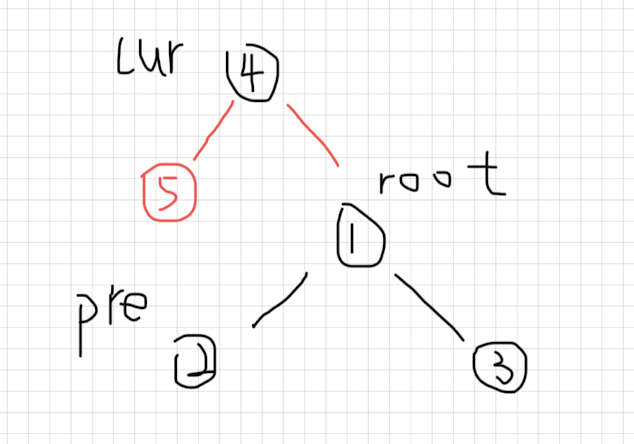 cur 4
5
root
1
pre
2
3